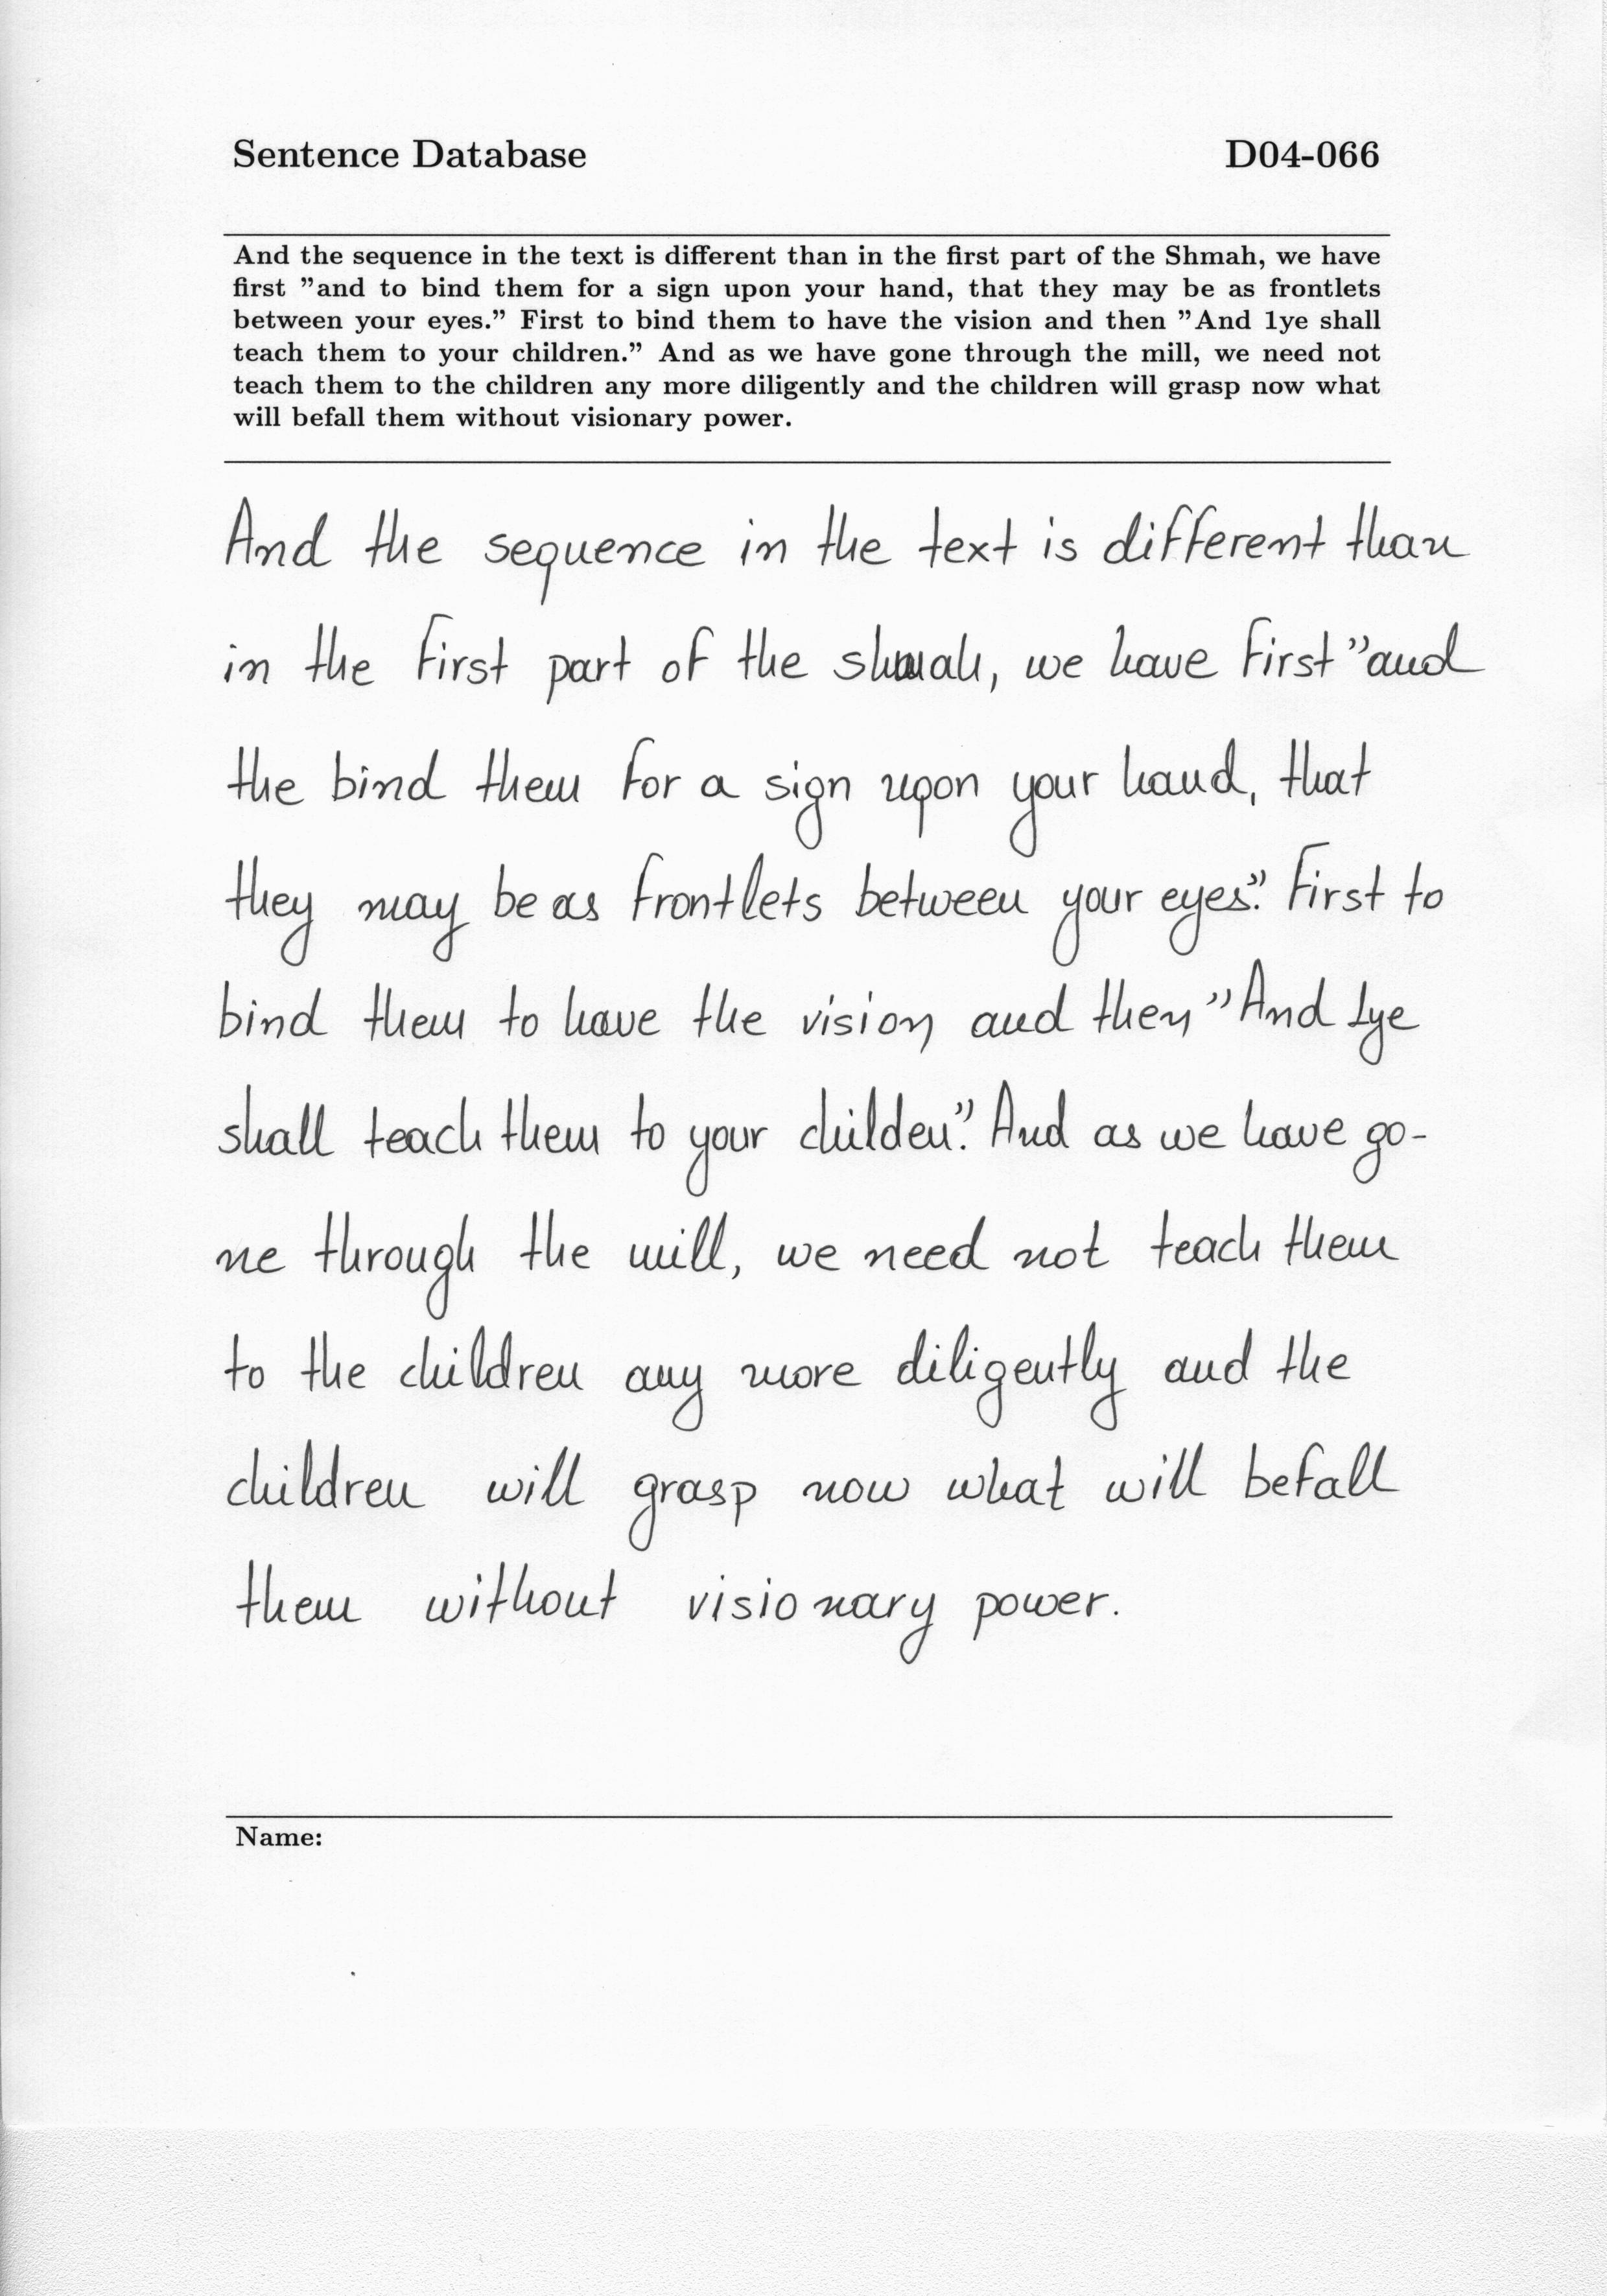 Sentence Database D04-066
And the sequence in the text is different than in the first part of the Shmah, we have
first ”and to bind them for a sign upon your hand, that they may be as frontlets
between your eyes.” First to bind them to have the vision and then ”And 1ye shall
teach them to your children.” And as we have gone through the mill, we need not
teach them to the children any more diligently and the children will grasp now what
will befall them without visionary power.
And the sequence in the text is different than
in the first part of the shmah, we have first ”and
the bind them for a sign upon your hand, that
they may be as frontlets between your eyes.” First to
bind them to have the vision and then ”And 1ye
shall teach them to your childen.” And as we have go-
ne through the mill, we need not teach them
to the children any more diligently and the
children will grasp now what will befall
them without visionary power.
Name: